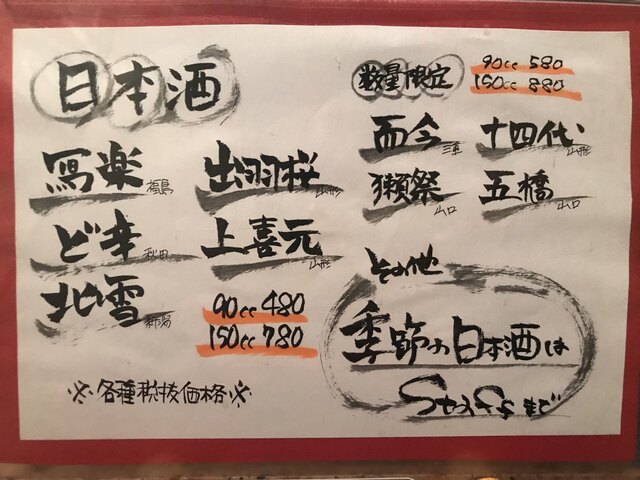 日本酒
寫楽 福島
出羽桜 山形
ど辛 秋田
上喜元 山形
北雪 新潟
90cc 480
150cc 780
※各種税抜価格※
数量限定
90cc 580
150cc 880
而今 三重
十四代 山形
獺祭 山口
五橋 山口
その他
季節の日本酒は
Staffまで